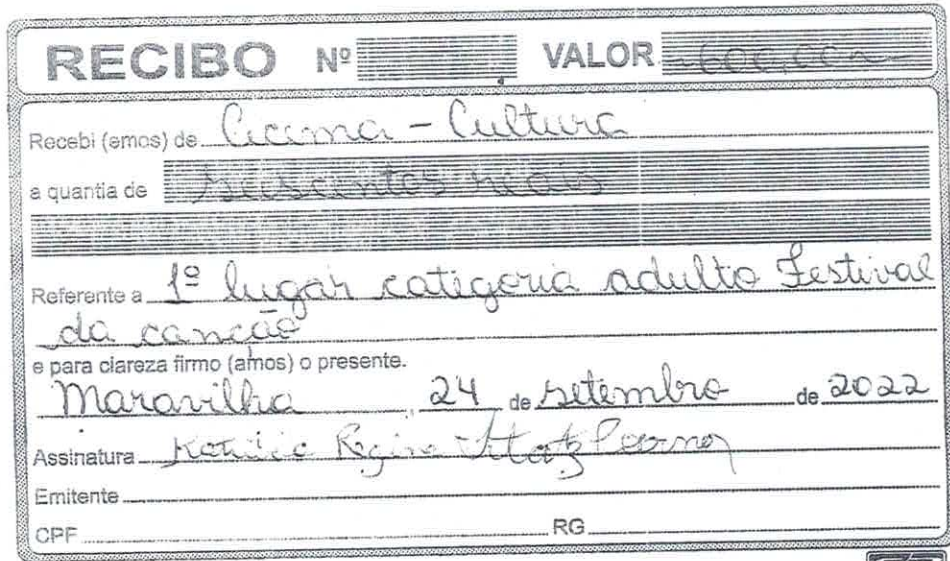 RECIBO Nº VALOR 600,00
Recebi (emos) de - Cultura
a quantia de seiscentos reais
Referente a 1º lugar categoria adulto Festival
da canção
e para clareza firmo (amos) o presente.
Maravilha, 24 de setembro de 2022
Assinatura Regina
Emitente
CPF RG